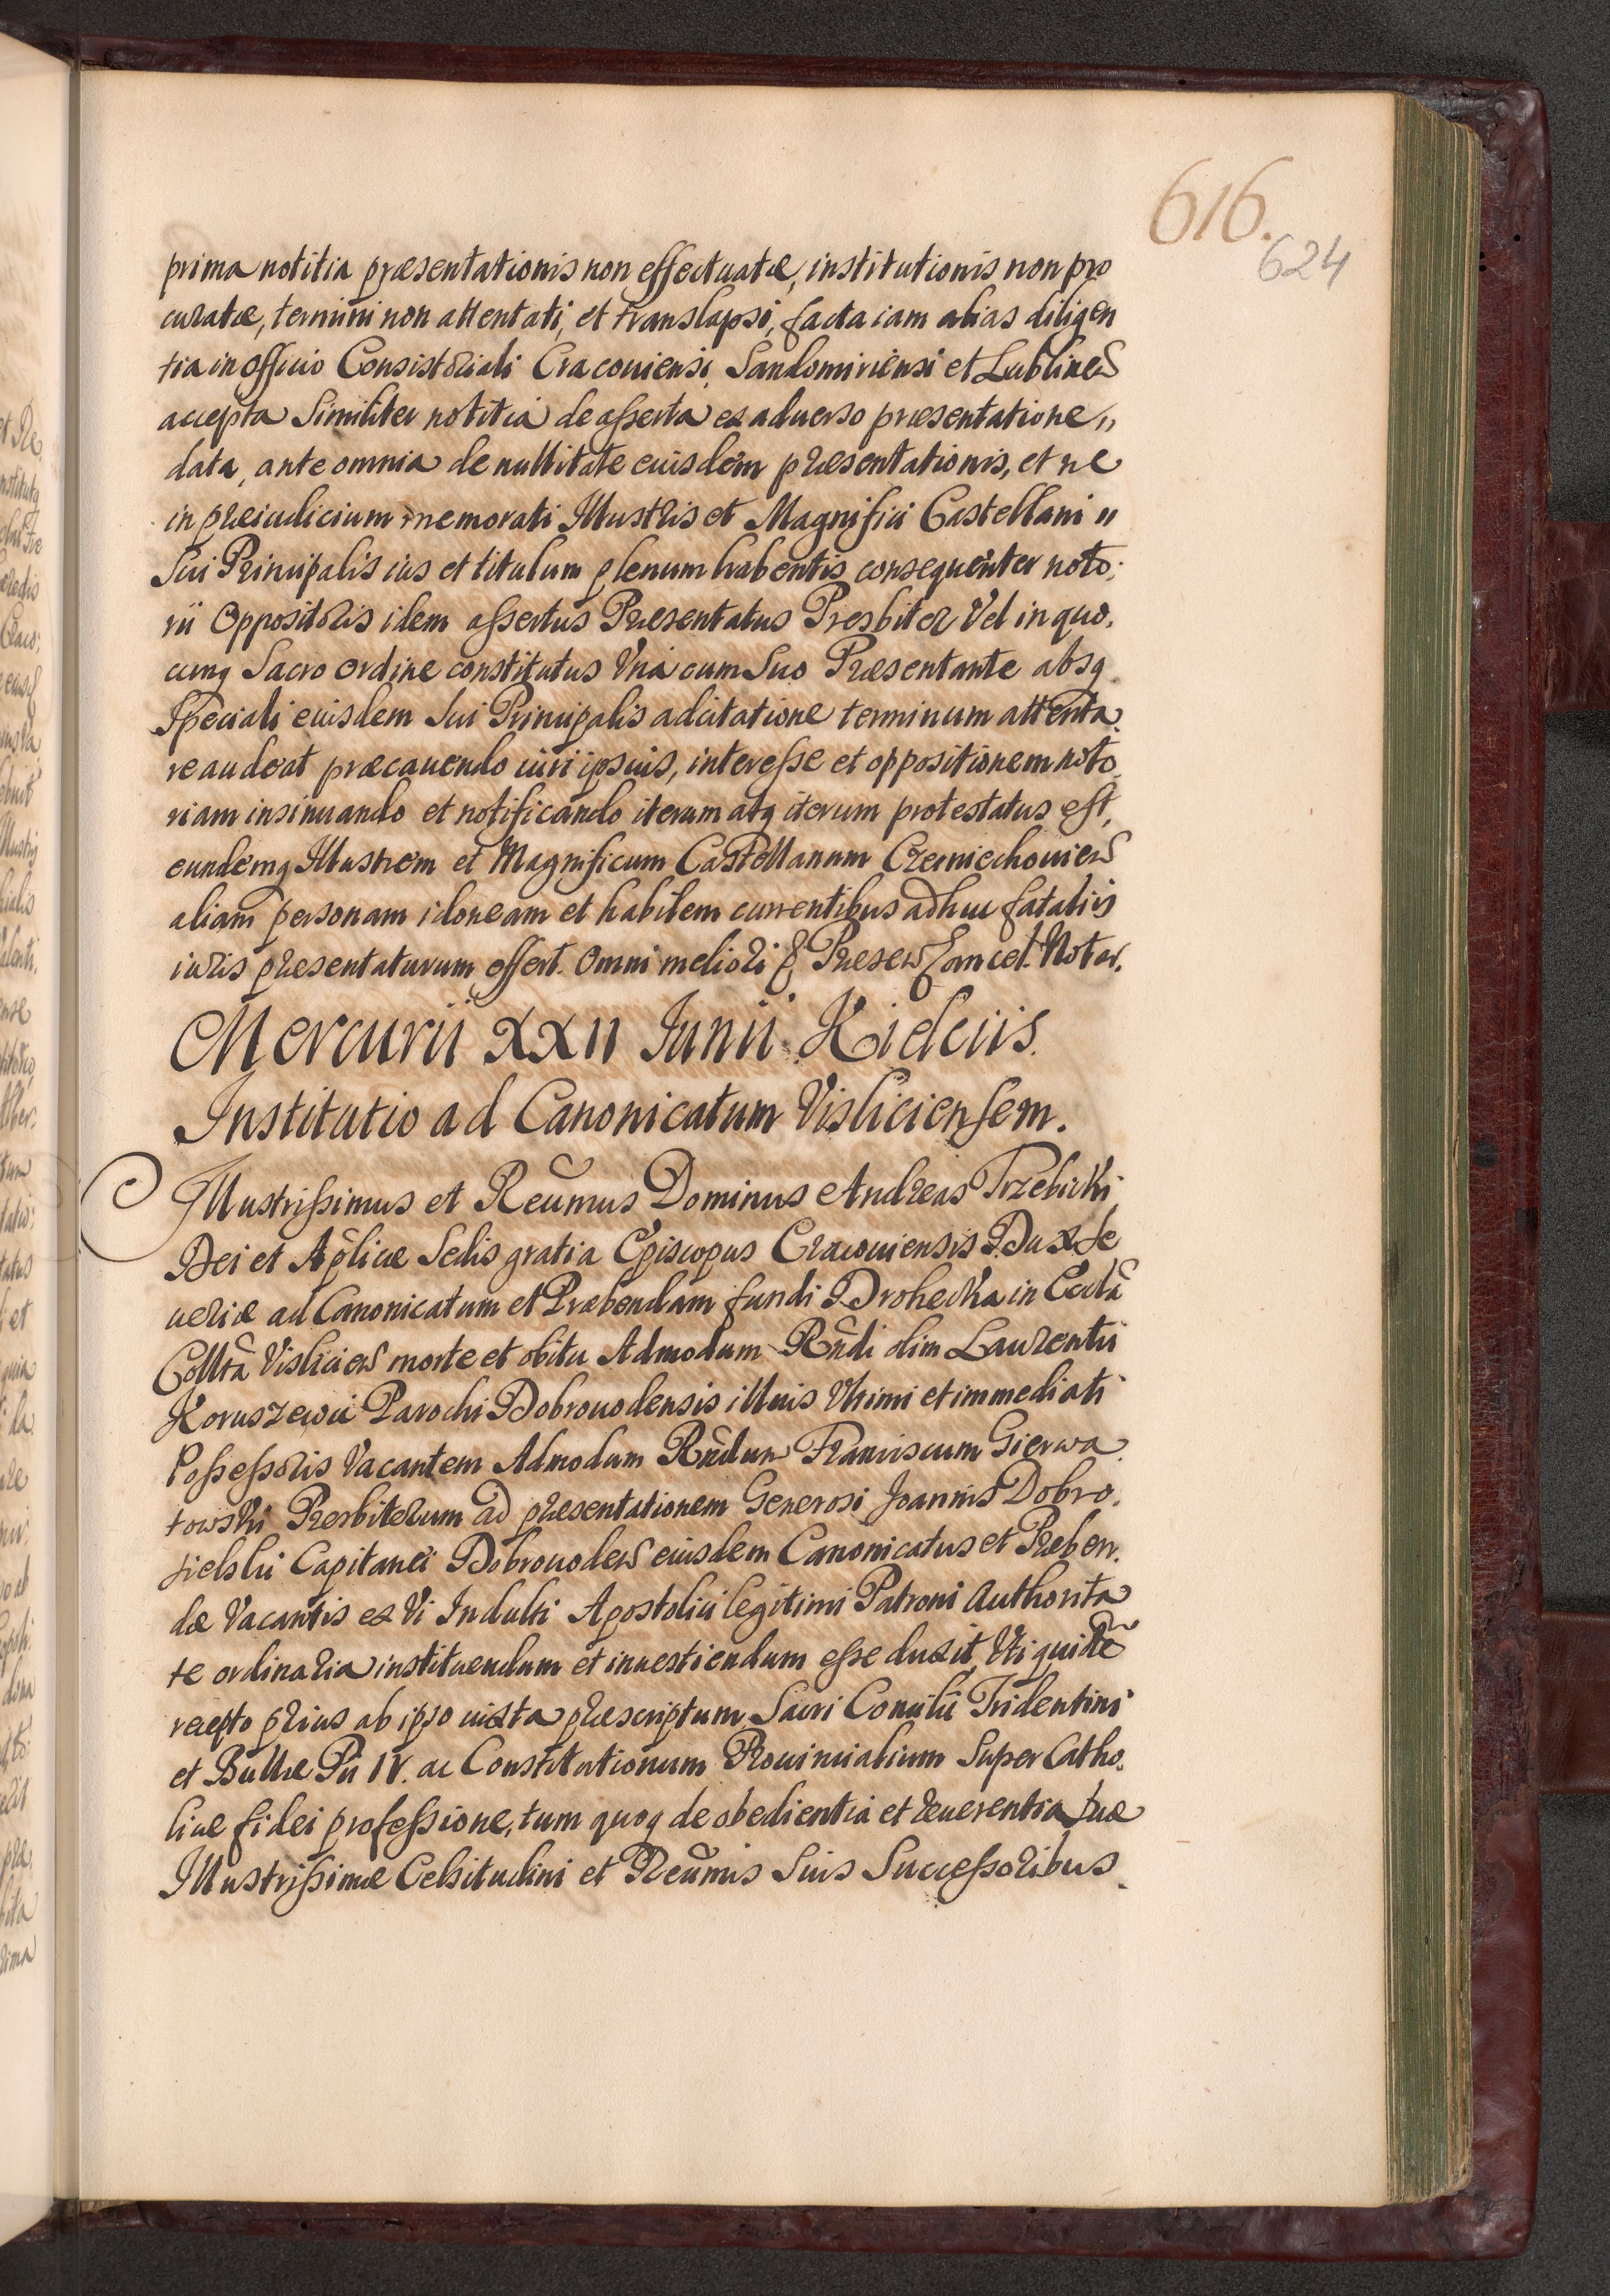 616.
624
prima notitia præsentationis non effectuatæ, institutionis non pro
curatæ, termini non attentati, et translapsi, facta iam alias diligen
tia in Officio Consistoriali Cracouiensi, Sandomiriensi et Lublinen
accepta Similiter notitia de asserta ex aduerso præsentatione "
data, ante omnia de nullitate euisdem præsentationis, et ne
in præiudicium memorati Illustris et Magnifici Castellani "
Sui Principalis ius et titulum plenum habentis consequenter noto:
rii Oppositoris idem assertus Præsentatus Presbiter Vel in quo.
cunq Sacro ordine constitutus Vna cum Suo Præsentante absq
Speciali euisdem Sui Principalis adcitatione terminum attenta.
re audeat præcauendo iuri ipsius, interesse et oppositionem noto.
riam insinuando et notificando iterum atq iterum protestatus est,
eundemq Illustrem et Magnificum Castellanum Czerniechouien
aliam personam idoneam et habilem currentibus adhuc fatalijs
iuris præsentaturum offert. Omni meliori Presen Concel. Notar.
Mercurii XXII Iunii Kielciis.
Institutio ad Canonicatum Visliciensem.
Illustrissimus et Reũmus Dominus Andreas Trzebicki
Dei et Aplicæ Sedis gratia Episcopus Cracouiensis Dux Se
ueriæ ad Canonicatum et Præbendam fundi Drohecka in Eccla
Collta Vislicien morte et obitu Admodum Rndi olim Laurentii
Koruszewic Parochi Dobrouodensis illius Vltimi et immediati
Possessoris Vacantem Admodum Rndum Franciscum Gierwa
towski Presbiterum ad præsentationem Generosi Joannis Dobro.
sielski Capitanei Dobrouoden euisdem Canonicatus et Præben.
dæ Vacantis ex Vi Indulti Apostolici legitimi Patroni Authorita
te ordinaria instituendum et inuestiendum esse duxit, Vti quidẽ
recepto prius ab ipso iuxta præscriptum Sacri Concilii Tridentini
et Bullæ Pii IV. ac Constitutionum Prouincialium Super Catho.
licæ fidei professione, tum quoq de obedientia et reuerentia suæ
Illustrissimæ Celsitudini et Reũmis Suis Successoribus.